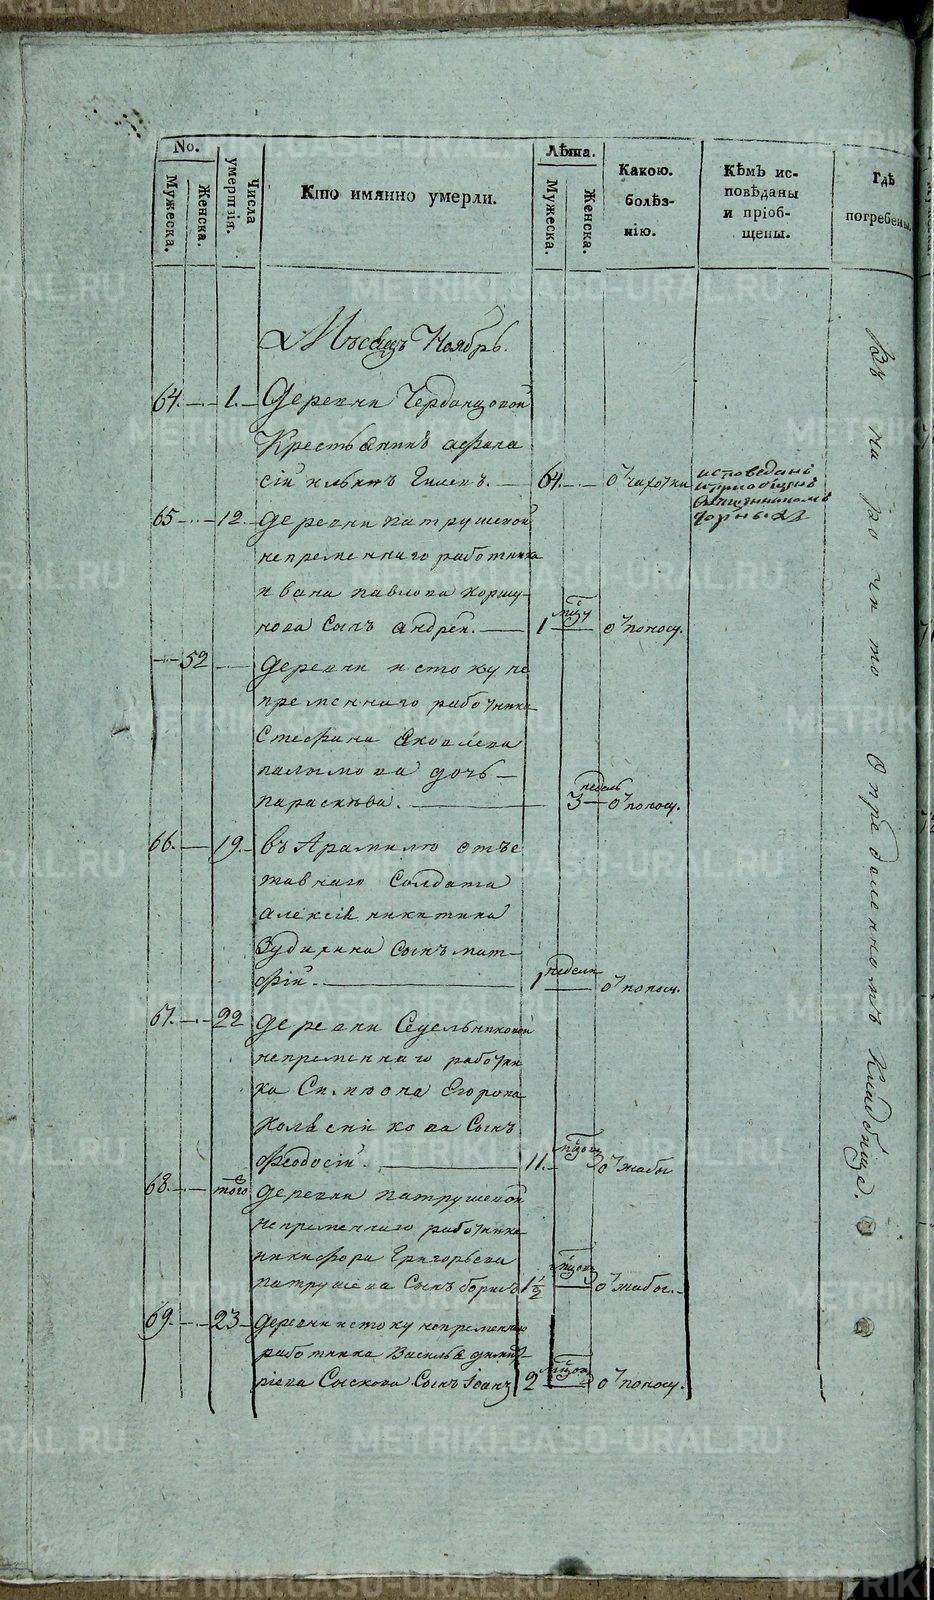 No.
Мужеска.
Женска.
Числа умершзія.
Кто имянно умерли.
Лѣта.
Мужеска.
Женска.
Какою.
болѣз-
нію.
Кѣмъ ис-
повѣданы
и пріоб-
щены.
Гдѣ
погребены.
Мѣсяцъ Ноябрь.
64. — 1. Деревни Чербанцовой
Крестьянинъ афана
сій ильинъ — 64. — о чахотки исповеданъ
и приобщенъ
священникомъ
65 — 12. деревни патрушевой
непременнаго работника
ивана павлова коршу
нова сынъ андрей. — 1 мцу о поносу.
— 52 — деревни истоку не
пременнаго работника
Стефана Яковлева
палкмова дочь —
параскѣва. — 3 недель о поносу.
66. — 19. въ Арамилѣ отъ
ставнаго солдата
алексѣя никитина
Зубарика сынъ мат-
фій. — 1 недели о поносу.
67. — 22 деревни Седельниковой
непременнаго работни
ка Симиона Егорова
колѣсникова сынъ
феодосій. — 11. мцовъ о жабы
68. — того деревни патрушевой
непременнаго работника
никифора Григорьева
патрушева сынъ борисъ 1½ мцовъ о жабы. —
69. — 23 — деревни истоку непременнаго
работника Василья дмит
ріева Сыскова сынъ Іоанъ 2 мцовъ о поносу.
Въ на ро чи то Опредѣленномъ Кладбище.
METRIKI.GASO-URAL.RU